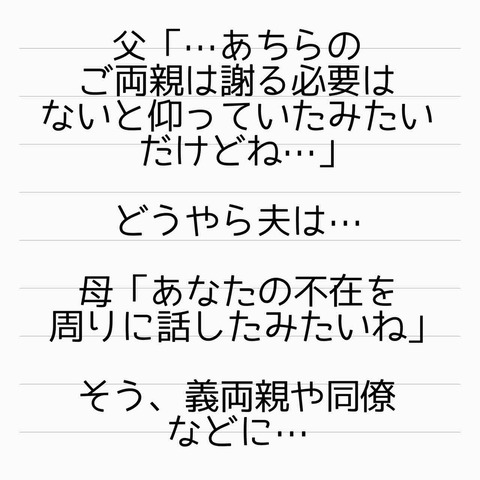 父「…あちらの
ご両親は謝る必要は
ないと仰っていたみたい
だけどね…」
どうやら夫は…
母「あなたの不在を
周りに話したみたいね」
そう、義両親や同僚
などに…